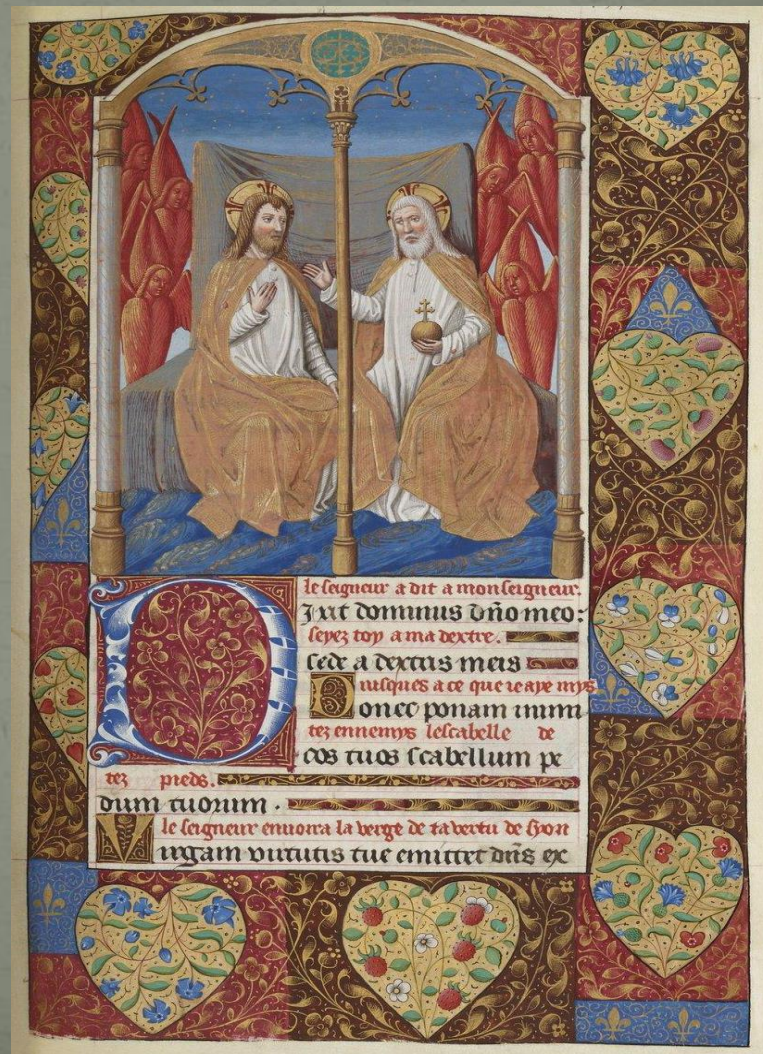 le seigneur a dit a mon seigneur.
Dixit dominus dño meo:
seyez toy a ma dextre.
sede a dextris meis
iusques a ce que ie aye mys
Donec ponam inimi
tez ennemys lescabelle de
cos tuos scabellum pe
tez pieds.
dum tuorum.
le seigneur enuoira la verge de ta vertu de syon
Virgam virtutis tue emittet dñs ex